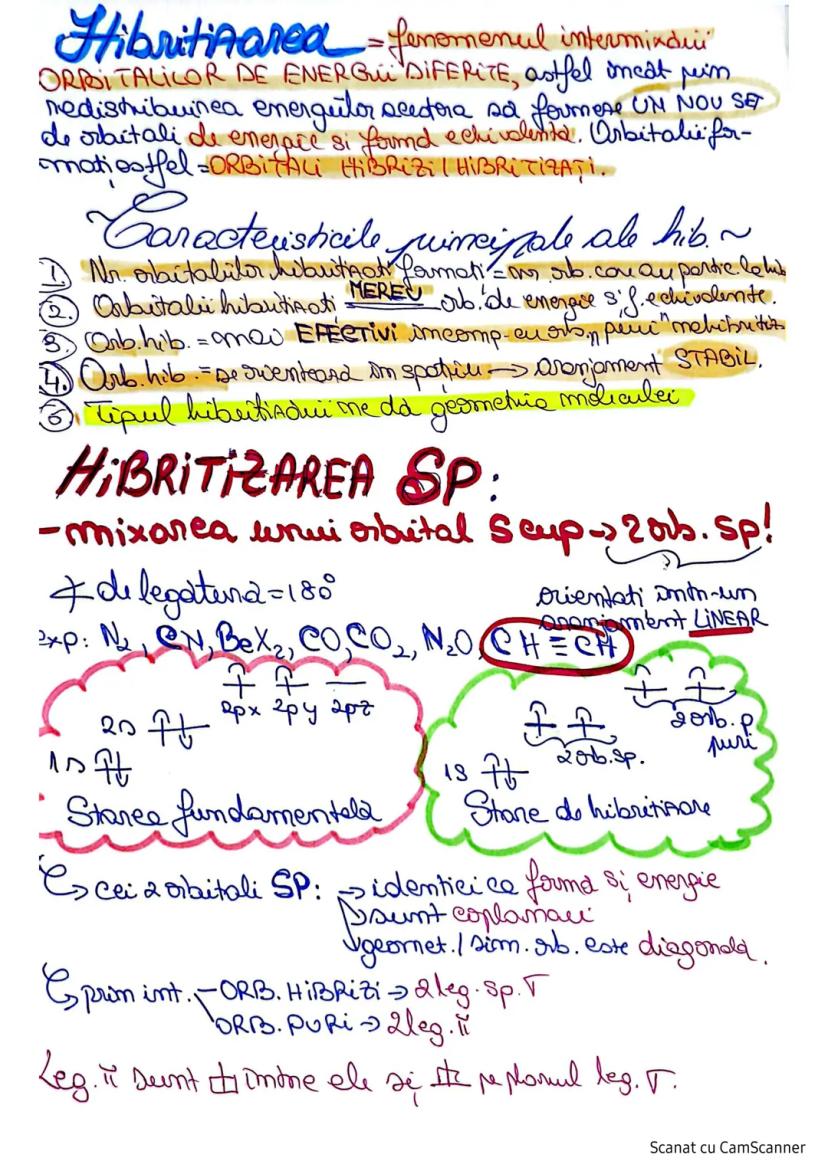 Hibritizarea = fenomenul intermixării
ORBITALILOR DE ENERGII DIFERITE, astfel încât prin
redistribuirea energiilor acestora să formeze UN NOU SET
de orbitali de energie si formă echivalentă. Orbitalii for-
mați astfel = ORBITALI HIBRIZI / HIBRITIZAȚI.
Caracteristicile principale ale hib. ~
1. Nr. orbitalilor hibritizați formați = nr. orb. care au participat la hib
2. Orbitalii hibritizați MEREU orb. de energie și f. echivalente.
3. Orb. hib. = mai EFECTIVI in comp. cu orb. "puri" nehibritiz
4. Orb. hib. = se orientează în spațiu → aranjament STABIL.
5. Tipul hibritizării ne dă geometria moleculei
HIBRITIZAREA SP:
- mixarea unui orbital S cu p → 2 orb. sp!
∢ de legătură = 180°
orientați într-un
aranjament LINEAR
exp: N2, CN, BeX2, CO, CO2, N2O, CH ≡ CH
2px 2py 2pz
2s
1s
Starea fundamentală
2 orb. p
puri
2 orb. sp.
1s
Stare de hibritizare
cei 2 orbitali SP: → identici ca formă și energie
→ sunt coplanari
→ geomet. / sim. orb. este diagonală.
prin int. - ORB. HIBRIZI → 2 leg. sp. σ
ORB. PURI → 2 leg. π
Leg. π sunt ⊥ între ele și ⊥ pe planul leg. σ.
Scanat cu CamScanner